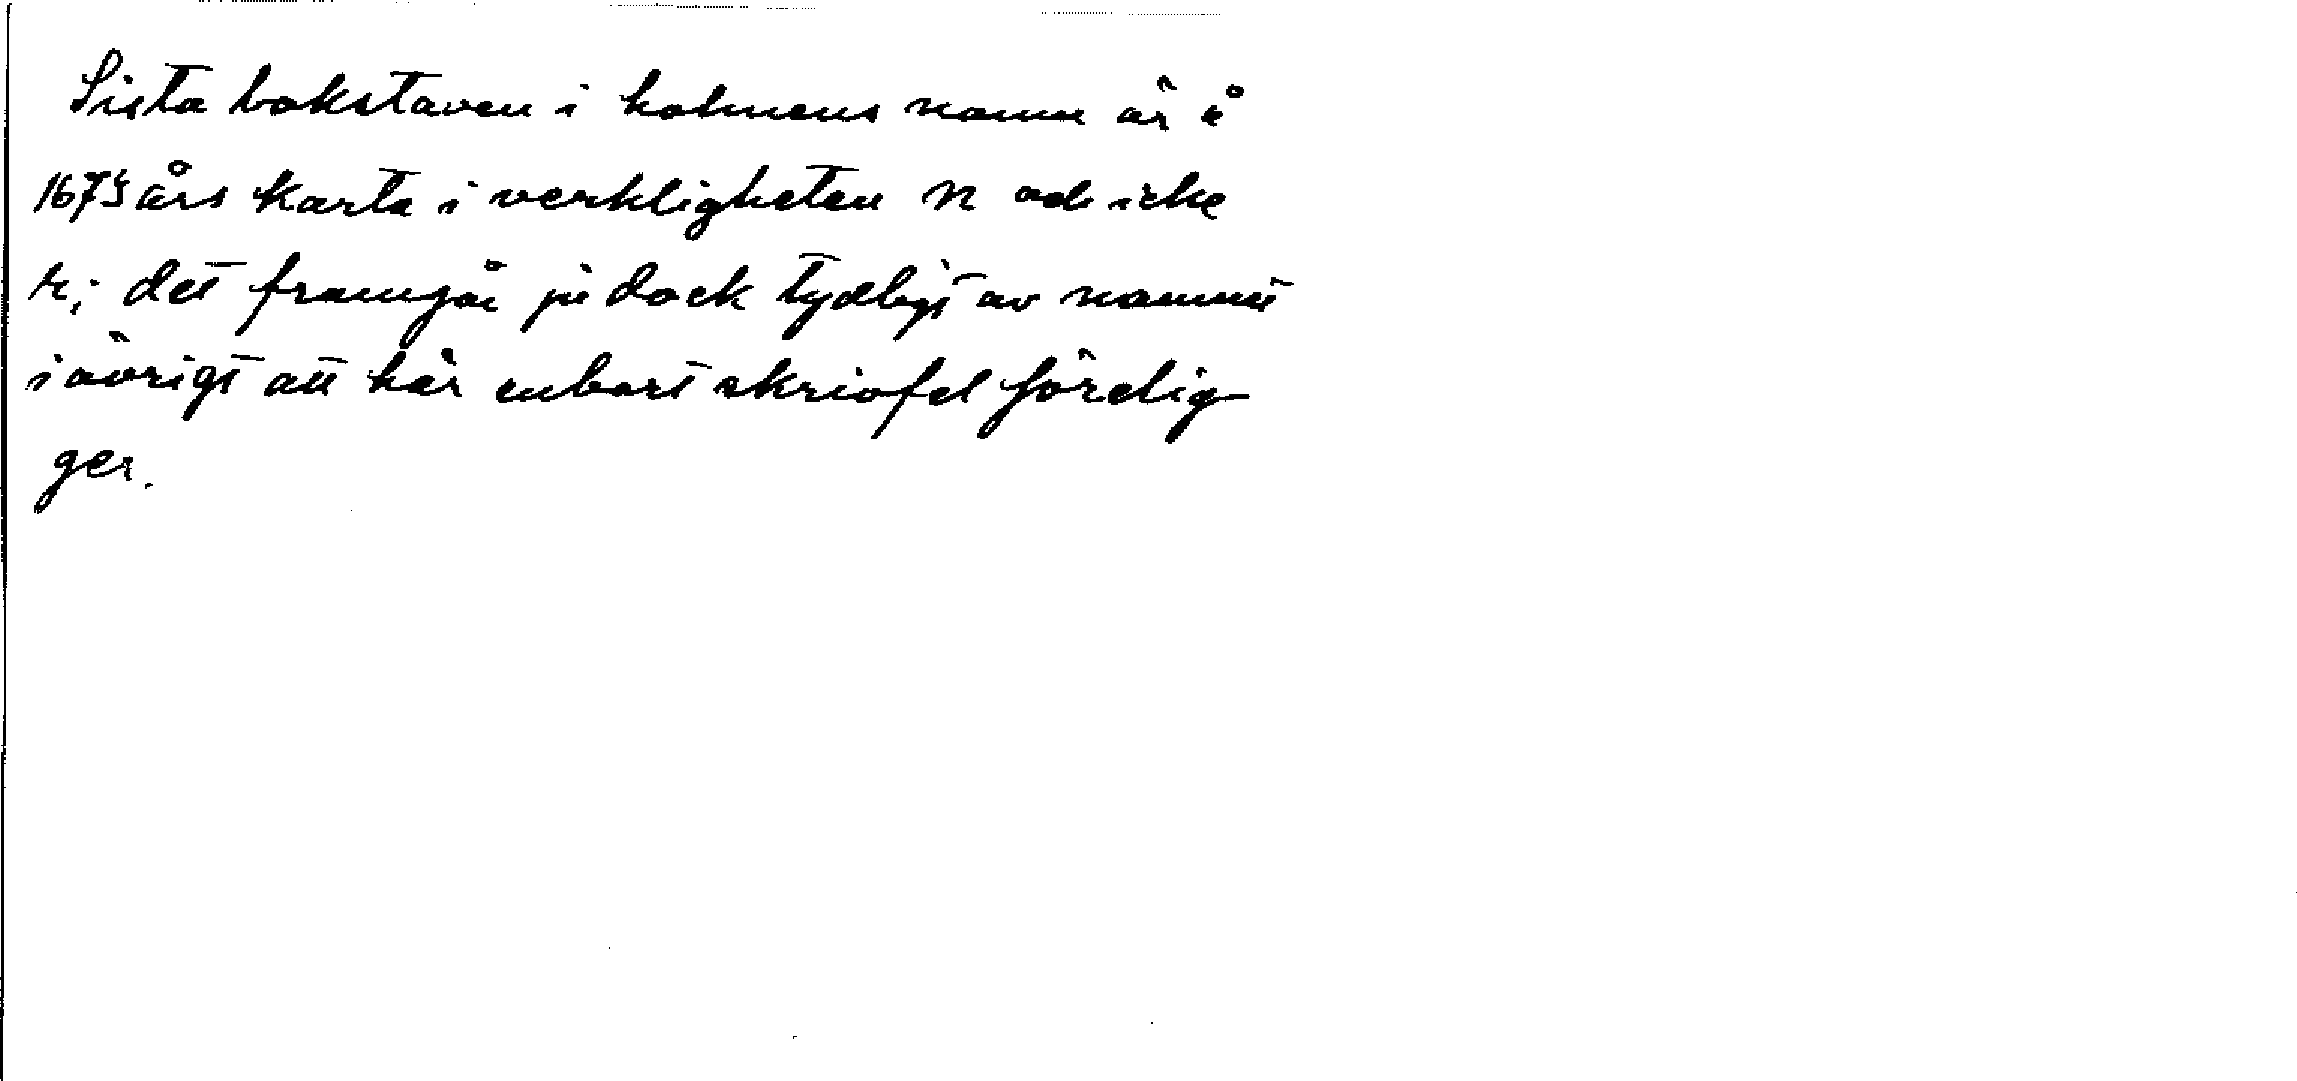 Sista bokstaven i holmens namn är å
1673 års karta i verkligheten n och icke
r; det framgår ju dock tydligt av namnet
i övrigt att här enbart skrivfel förelig-
ger.